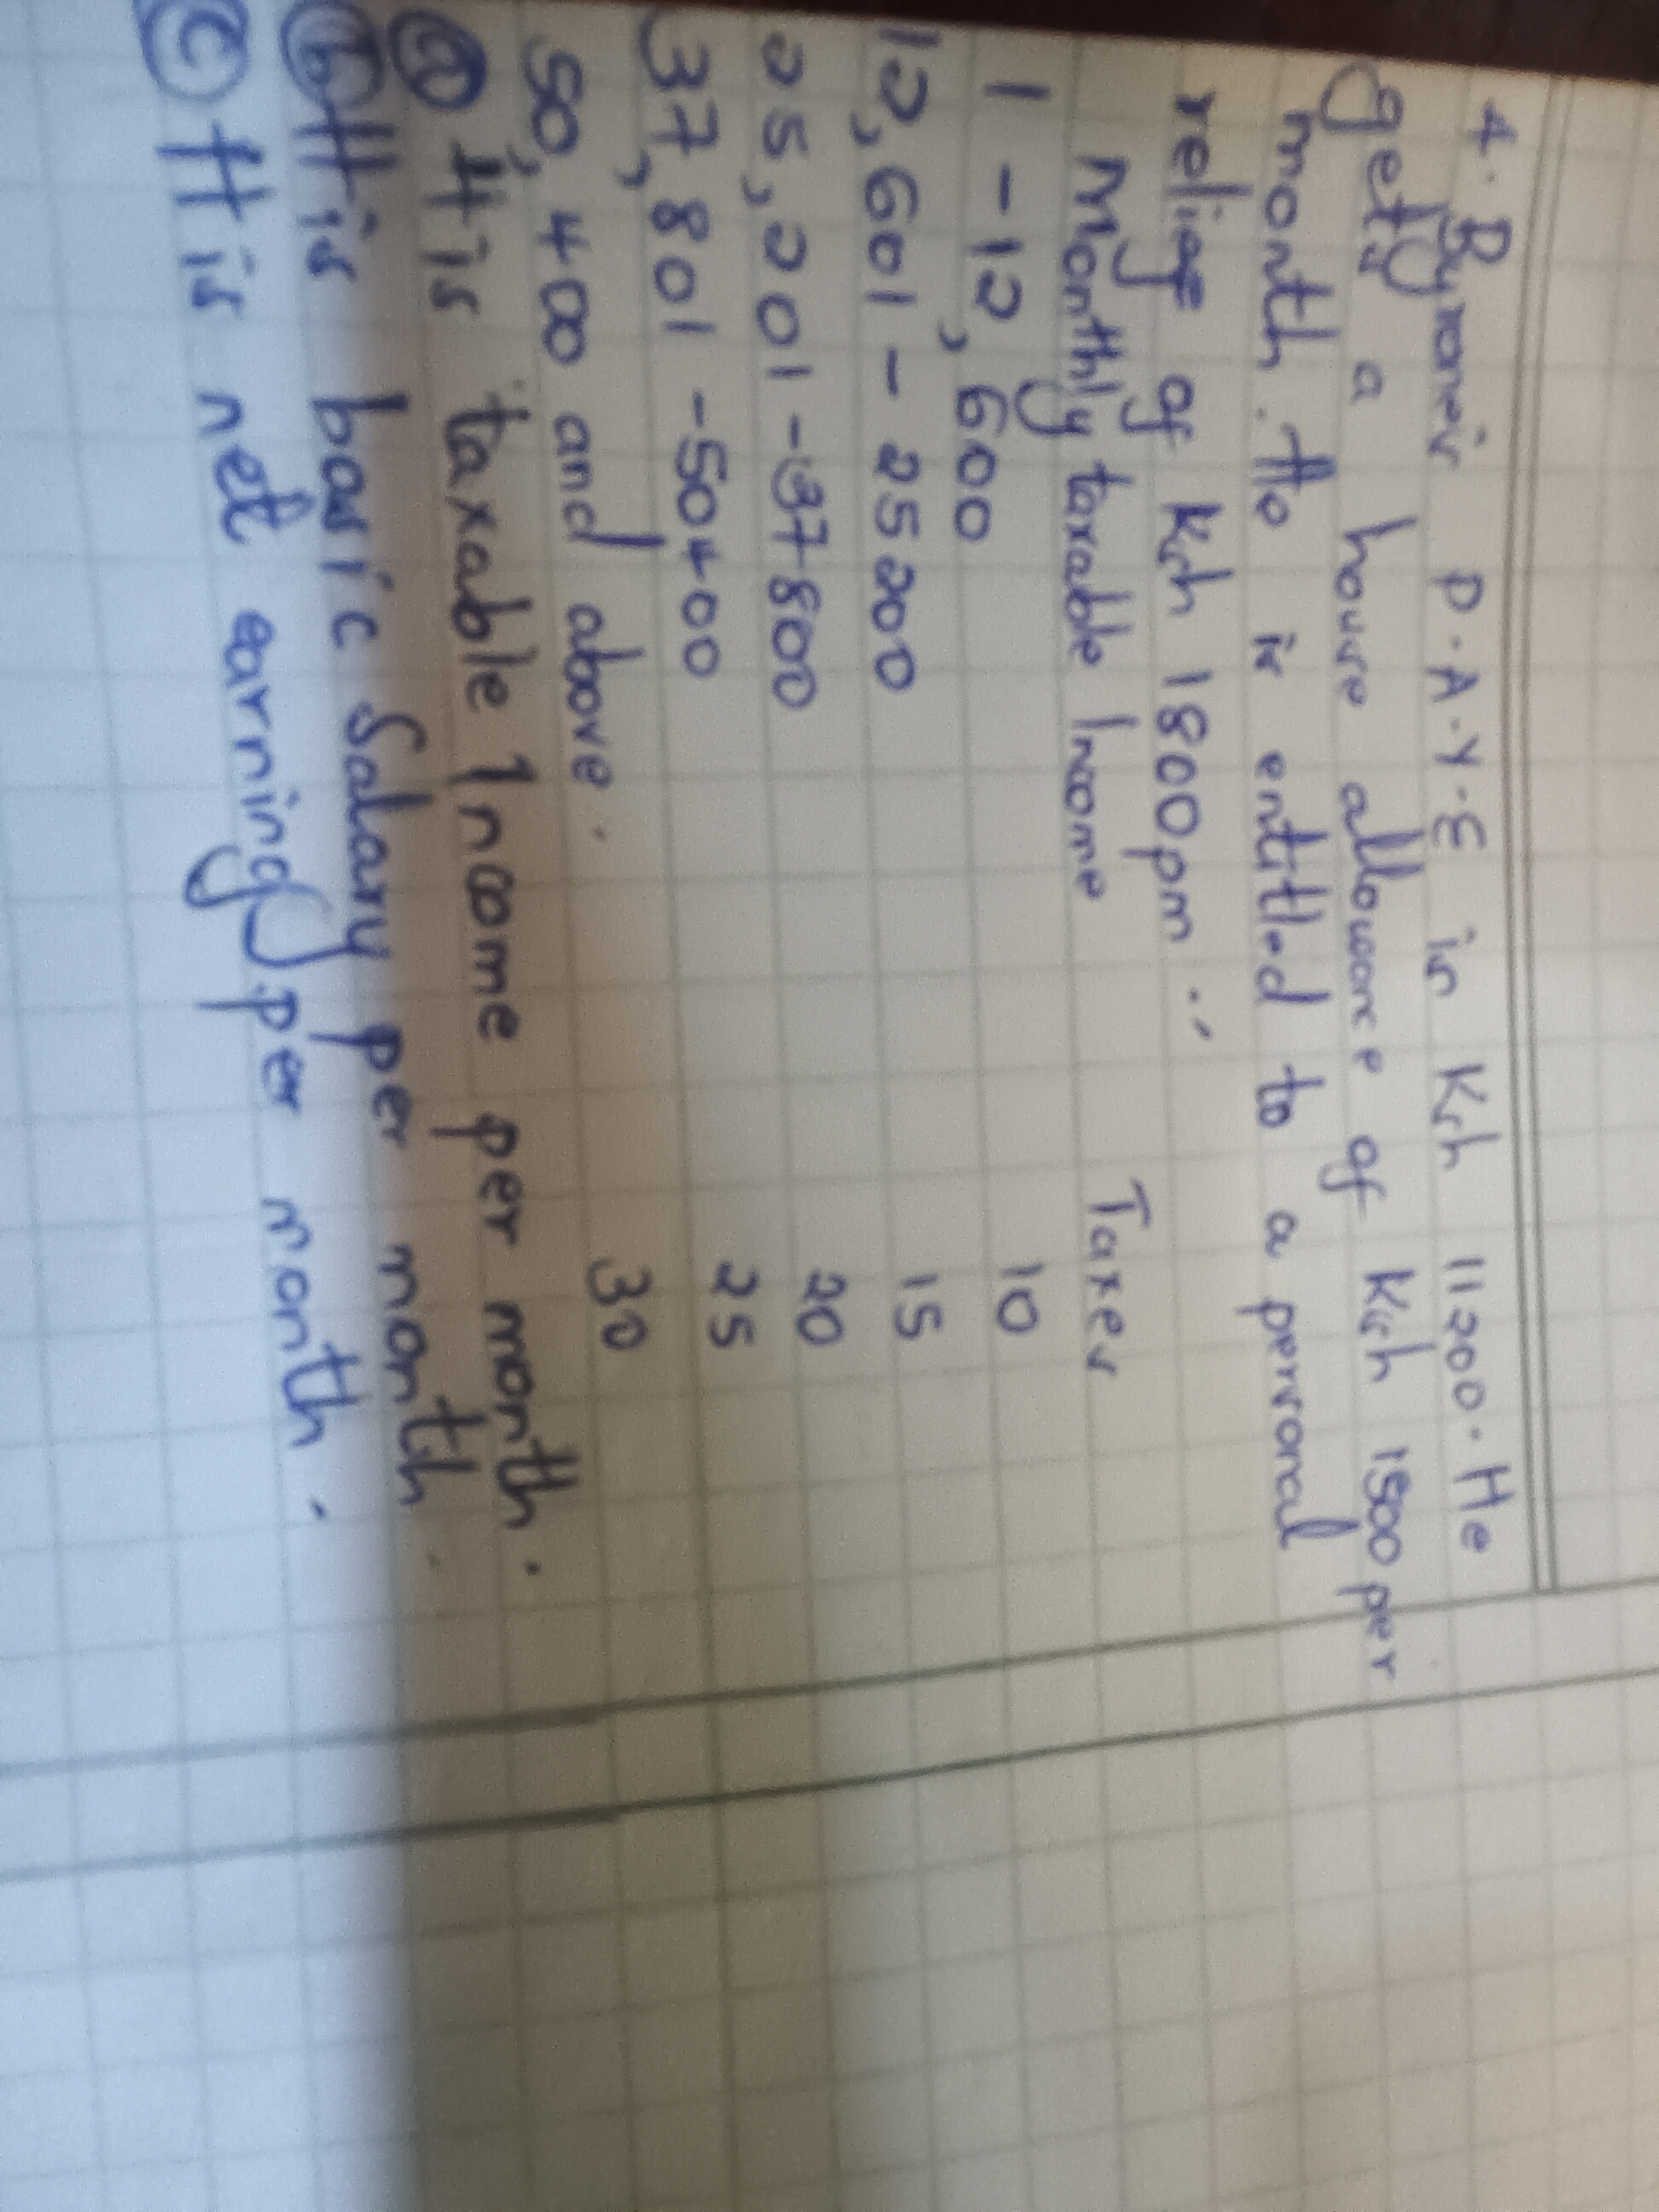 4. Byronis P.A.Y.E in Ksh 11200. He
gets a house allowance of Ksh 1500 per
month. He is entitled to a personal
relief of Ksh 1800pm.
Monthly taxable Income Taxes
1 - 12,600 10
12,601 - 25200 15
25,201 - 37800 20
37,801 - 50400 25
50,400 and above. 30
a) His taxable Income per month.
b) His basic Salary per month.
c) His net earning per month.